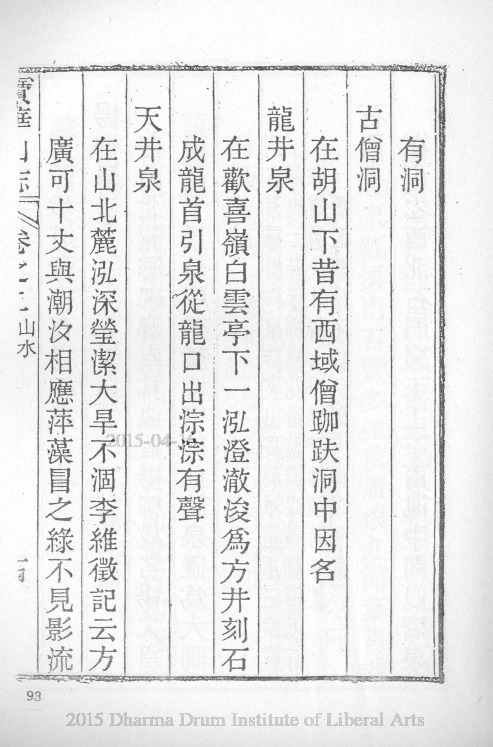 有洞
古僧洞
在胡山下昔有西域僧跏趺洞中因名
龍井泉
在歡喜嶺白雲亭下一泓澄澈浚爲方井刻石
成龍首引泉從龍口出淙淙有聲
天井泉
在山北麓泓深瑩潔大旱不涸李維徵記云方
廣可十丈與潮汐相應萍藻冒之綠不見影流
寶華山志 卷之二 山水
93
2015-04-
2015 Dharma Drum Institute of Liberal Arts